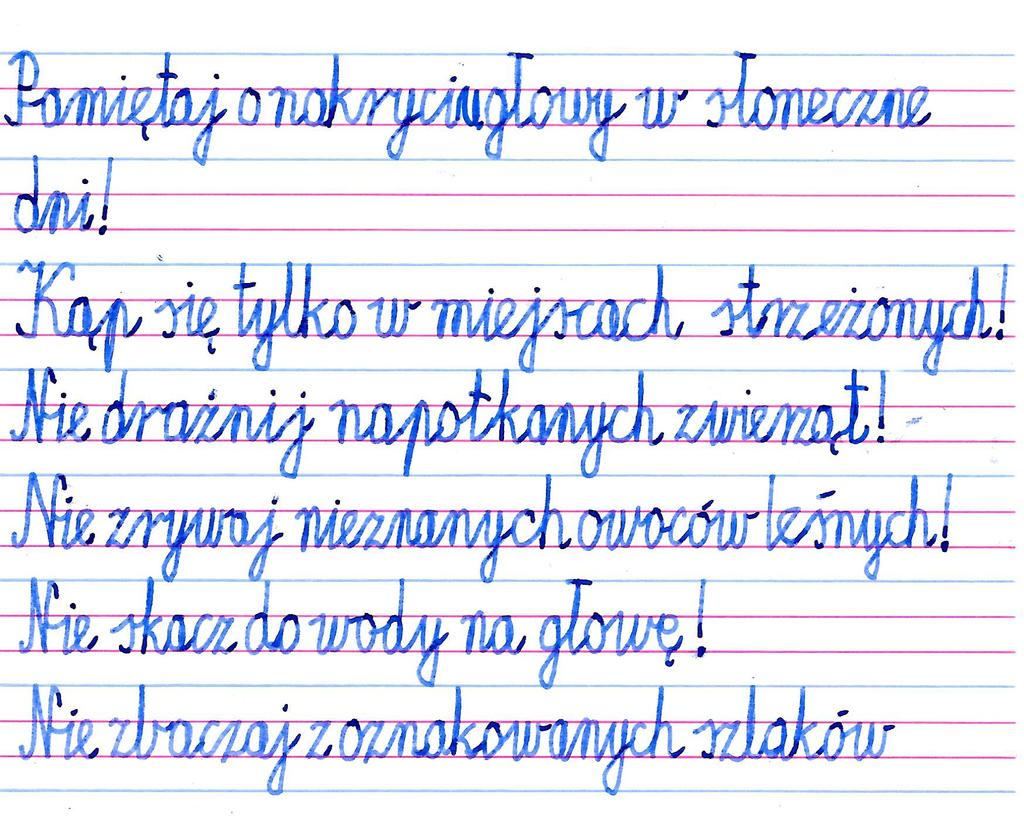 Pamiętaj o nakryciu głowy w słoneczne
dni!
Kąp się tylko w miejscach strzeżonych!
Nie drażnij napotkanych zwierząt!
Nie zrywaj nieznanych owoców leśnych!
Nie skacz do wody na głowę!
Nie zbaczaj z oznakowanych szlaków